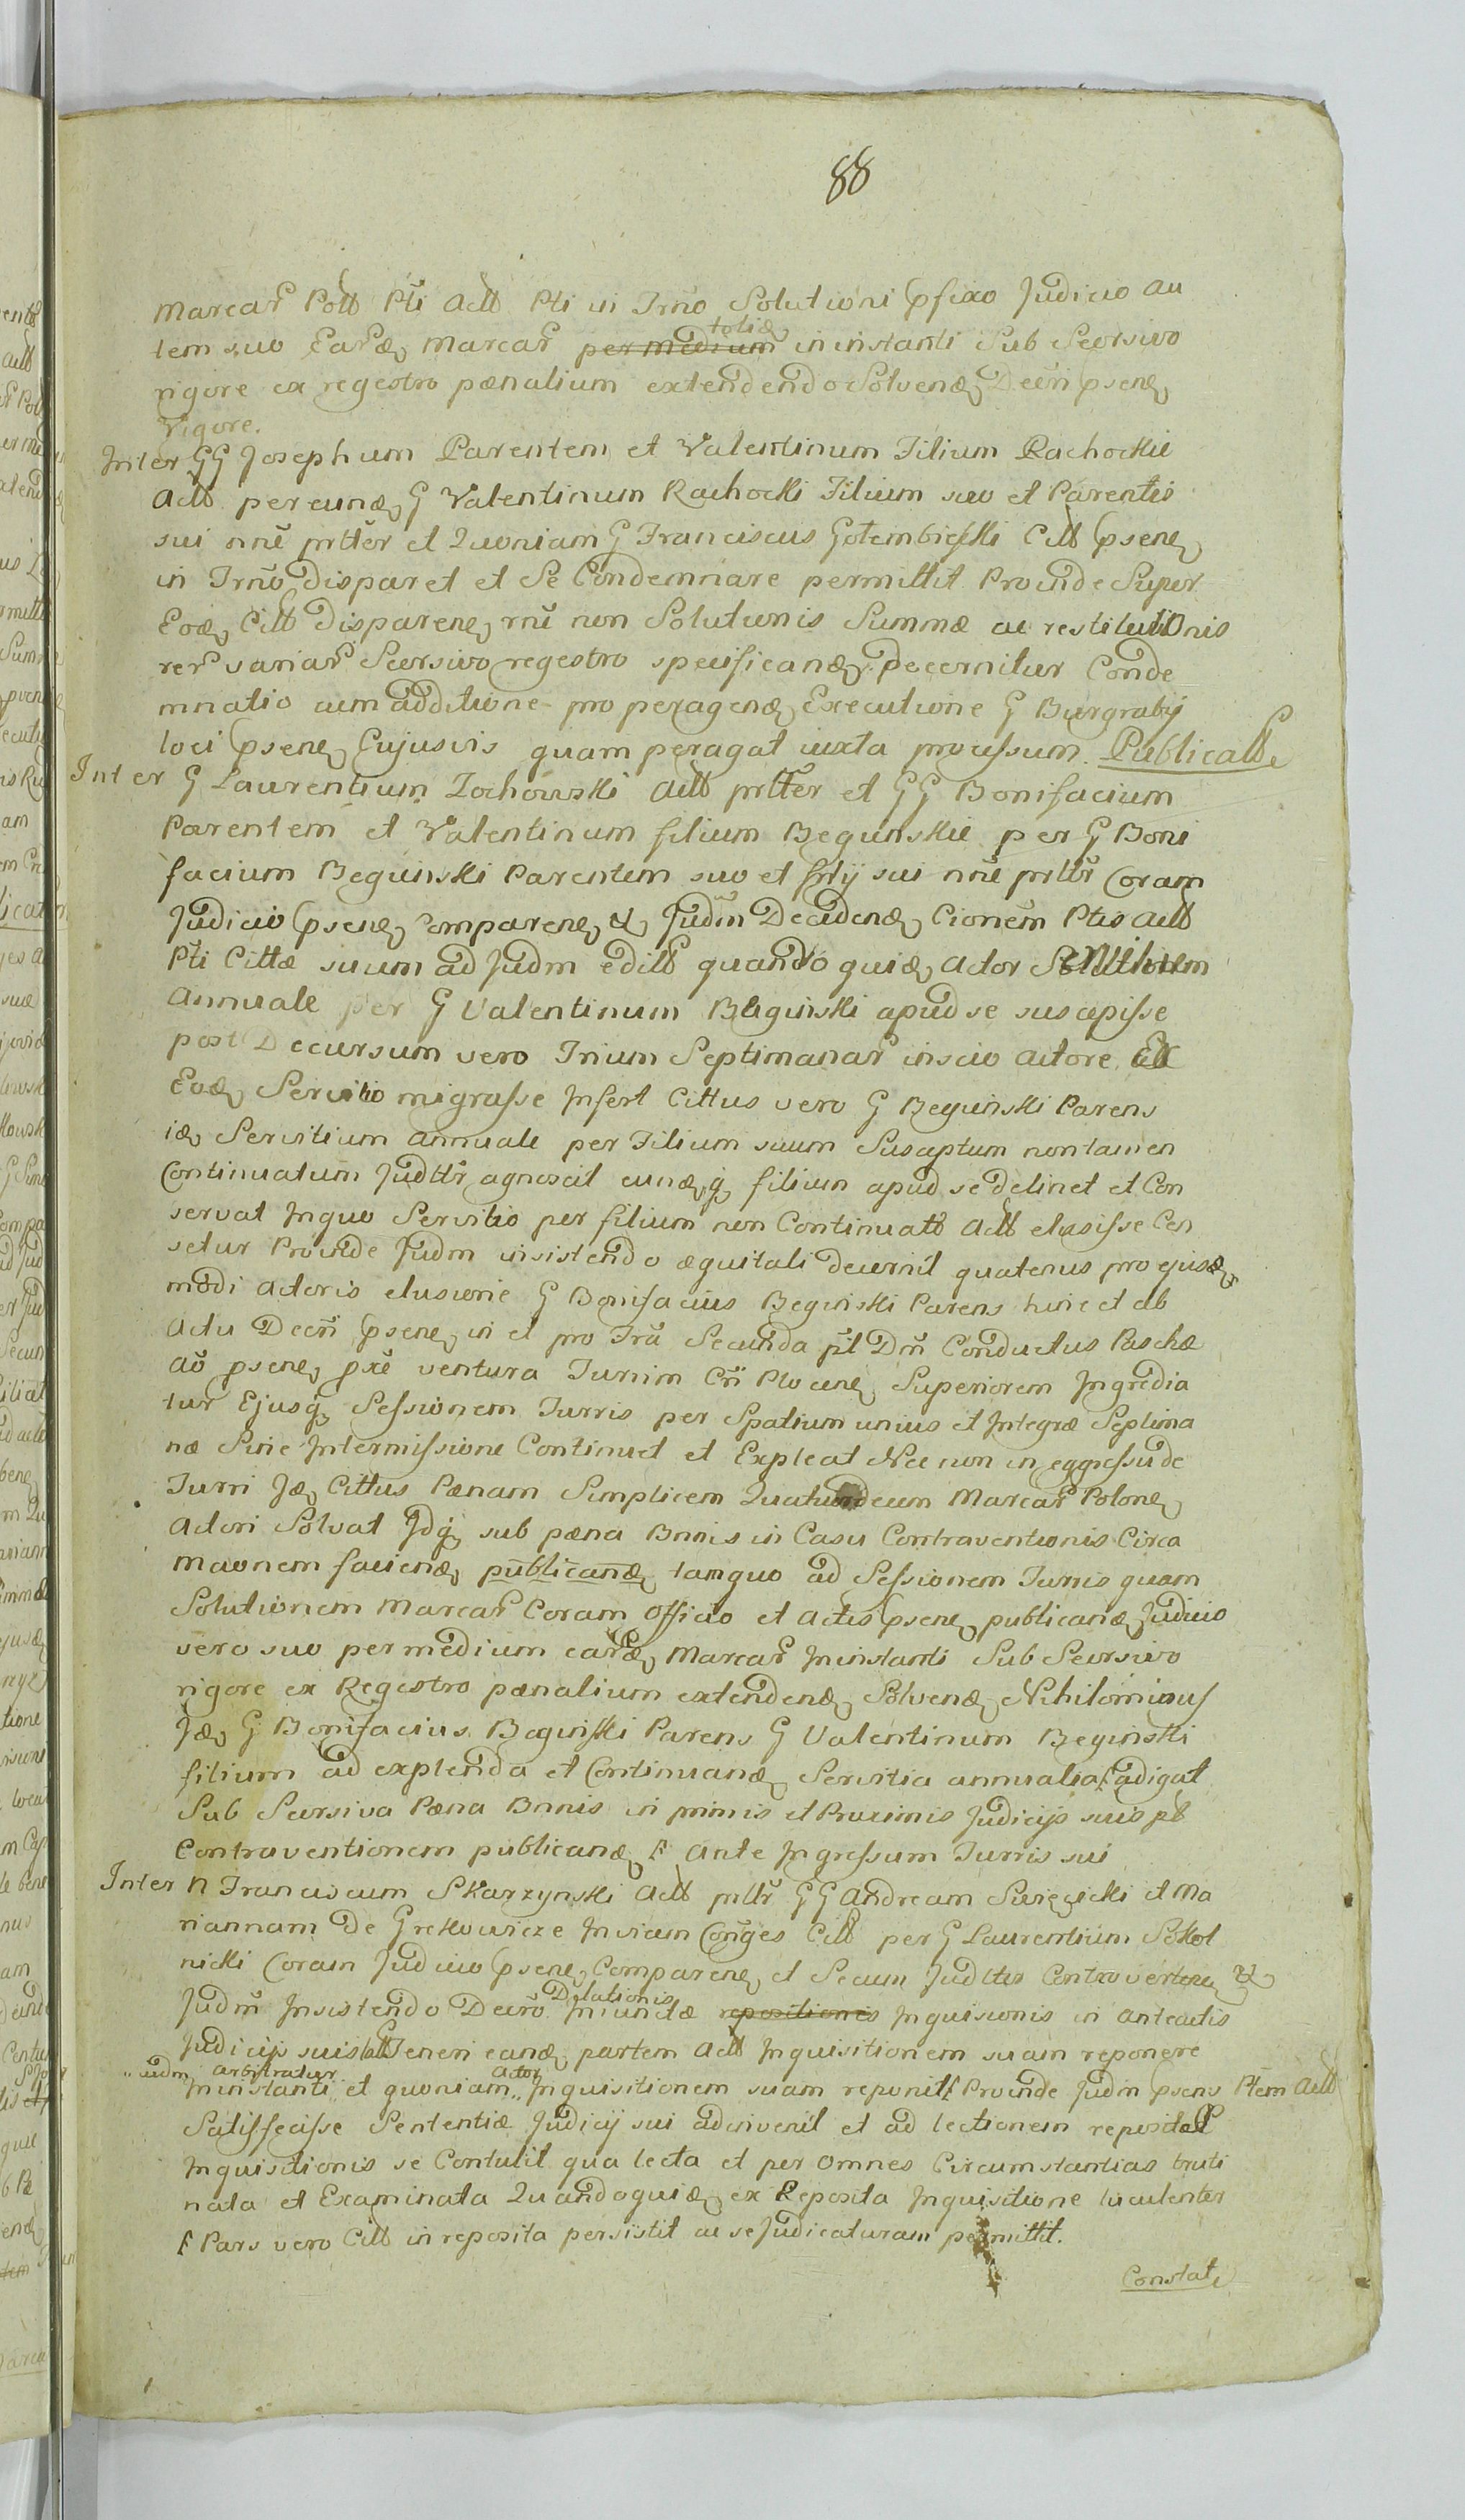 88
Marcar Poll Pti Actt Pti in Trno Solutioni pfixo Judicio au
tem suo Eard Marcar per medium totid in instanti Sub Seorsivo
rigore ex regestro pænalium extendendo Solvend Decri psens
Vigore.
Inter GG Josephum Parentem et Valentinum Filium Rachockie
Actt per eund G Valentinum Rachocki Filium suo et Parentis
sui nne prtter et Quoniam G Franciscus Gołembieski Citt psens
in Trno disparet et Se Condemnare permittit Proinde Super
Eod Citt disparens rne non Solutionis Summæ ac restitutionis
rer variar Seorsivo regestro specificand Decernitur Conde
mnatio cum additione pro peragend Executione G Burgrabij
loci psens Cujusvis quam peragat iuxta processum. Publicatt
Inter G Laurentium Zochowski Actt prtter et GG Bonifacium
Parentem et Valentinum filium Begunskie per G Boni
facium Begunski Parentem suo et filij sui nne prlttr Coram
Judicio psens Comparens & Judm Decidend Cionem Ptis Actt
Pti Cittæ suum ad Judm editt quando quid Actor Servitium
Annuale per G Valentinum Beginski apud se suscepisse
post Decursum vero Trium Septimanar inscio Actore Ex
Eod Servitio migrasse Infert Cittus vero G Beguński Parens
id Servitium annuale per Filium suum Susceptum non tamen
Continuatum Judttr agnoscit eundq filium apud se detinet et Con
servat In quo Servitio per filium non Continuatt Actt elusisse Cen
setur Proinde Judm insistendo æquitati decernit quatenus pro ejusd
modi Actoris elusione G Bonifacius Beginski Parens hinc et ab
Actu Decri psens in et pro Fra Secunda pt Dm Conductus Paschæ
Ao psens pxe ventura Turrim Cri Plocens Superiorem Ingredia
tur Ejusq Sessionem Turris per Spatium unius et Integræ Septima
næ Sine Intermissione Continuet et Expleat Nec non in eggressu de
Turri Jd Cittus Pænam Simplicem Quatuordecim Marcar Polons
Actori Solvat Idq sub pæna Bnnis in Casu Contraventionis Circa
Maonem faciend publicand tam quo ad Sessionem Turris quam
Solutionem Marcar Coram Officio et Actis psens publicand Judicio
vero suo per medium eard Marcar In instanti Sub Seorsivo
rigore ex Regestro pænalium extendend Solvend Nihilominus
Jd G Bonifacius Beginski Parens G Valentinum Beginski
filium ad explenda et Continuand Servitia annualia adigat
Sub Seorsiva Pæna Bnnis in primis et Proximis Judicijs suis pt
Contraventionem publicand Ante Ingressum Turris sui
Inter N Franciscum Skarzynski Actt prlttr GG Andream Święcicki et Ma
riannam De Grekowicze Inviam Conges Citt per G Laurentium Sokol
nicki Coram Judicio psens Comparens et Secum Judttis Controvertens &
Judm Insistendo Decro Iniunctæ repositionis Delationis Inquisionis in Anteactis
Judicijs suis latt Teneri eand partem Actt Inquisitionem suam reponere
Judm arbitratur Actor
In instanti et quoniam Inquisitionem suam reponit Proinde Judm psens Ptem Actt
Satisfecisse Sententiæ Judicij sui adinvenit et ad lectionem reposita
Inquisitionis se Contulit qua lecta et per Omnes Circumstantias truti
nata et Examinata Quandoquid ex Reposita Inquisitione luculenter
Pars vero Citt in reposita persistit ac se Judicaturam permittit.
Constat